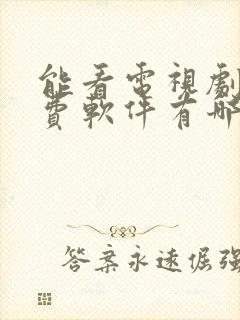 能看電視劇
費軟件有哪
答案永遠倔強